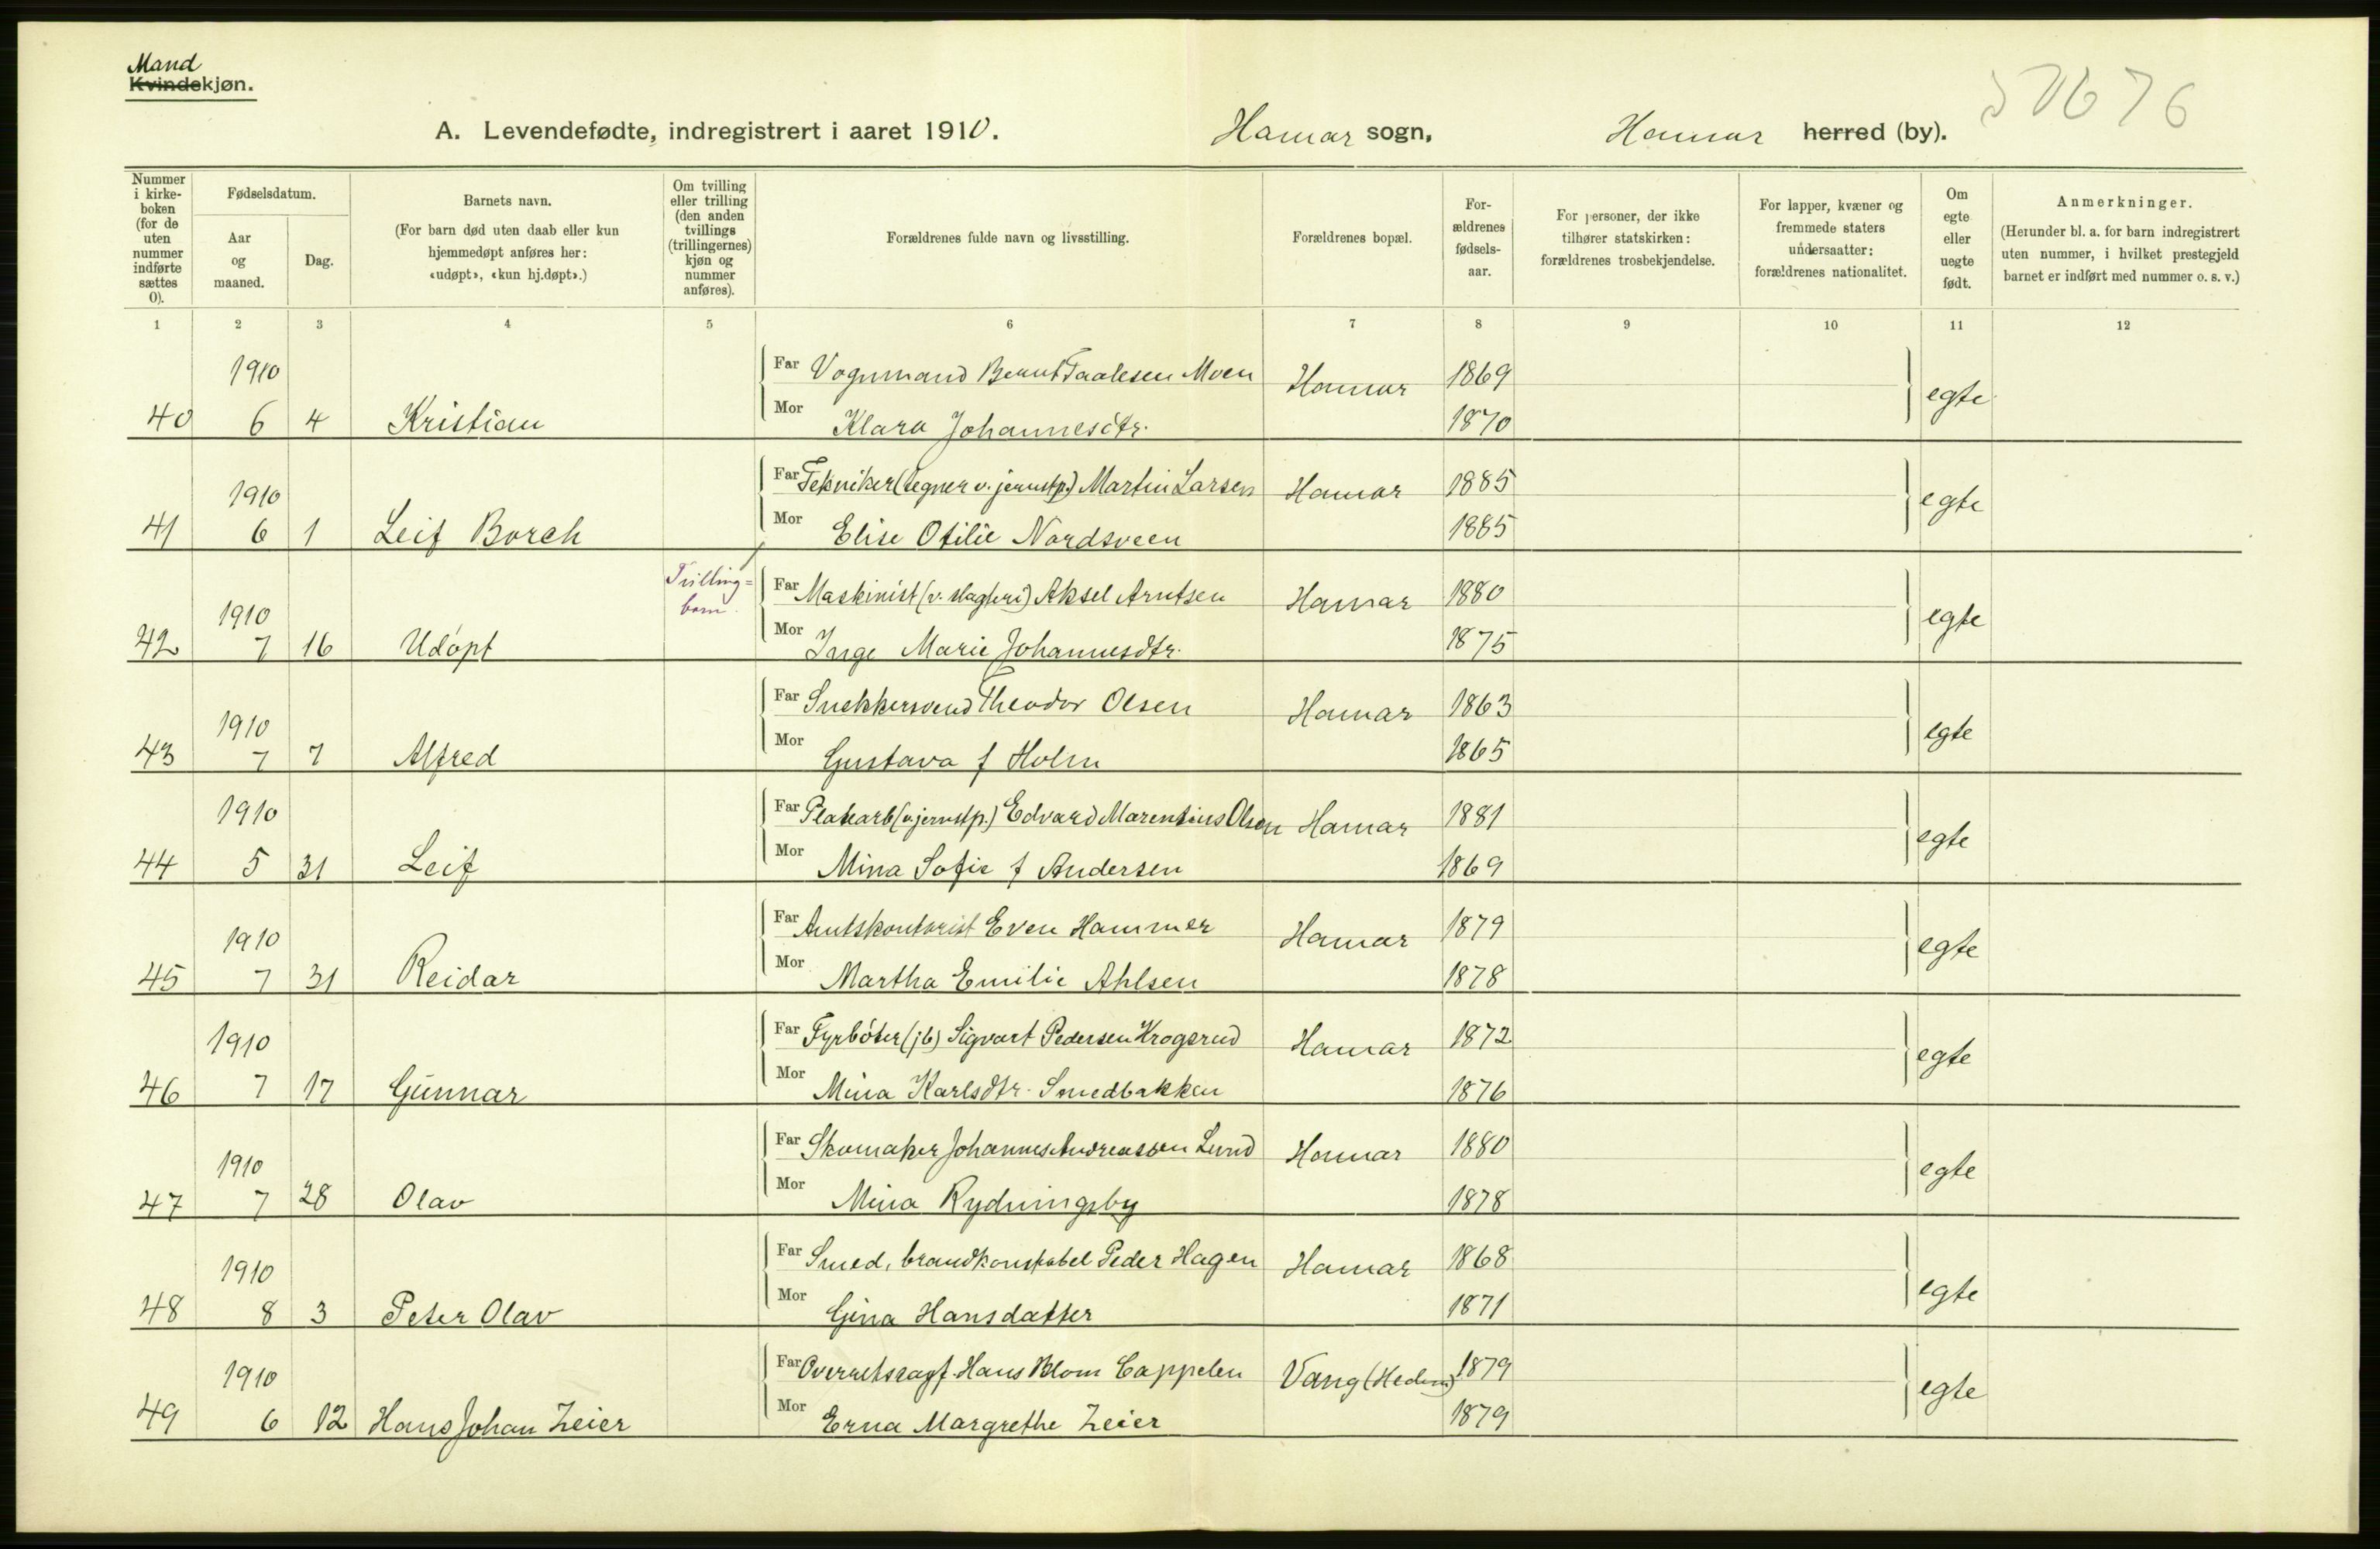 Mand
Kvindekjøn.
A. Levendefødte, indregistrert i aaret 1910. Hamar sogn, Hamar herred (by).
Nummer i kirke-boken (for de uten nummer indførte sættes 0).
Fødselsdatum.
Aar og maaned.
Dag.
Barnets navn.
(For barn død uten daab eller kun hjemmedøpt anføres her: «udøpt», «kun hj.døpt».)
Om tvilling eller trilling (den anden tvillings (trillingernes) kjøn og nummer anføres).
Forældrenes fulde navn og livsstilling.
Forældrenes bopæl.
For-ældrenes fødsels-aar.
For personer, der ikke tilhører statskirken: forældrenes trosbekjendelse.
For lapper, kvæner og fremmede staters undersaatter: forældrenes nationalitet.
Om egte eller uegte født.
Anmerkninger.
(Herunder bl. a. for barn indregistrert uten nummer, i hvilket prestegjeld barnet er indført med nummer o. s. v.)
1 2 3 4 5 6 7 8 9 10 11 12
1910 Far Vognmand Bernt Taalesen Moen Hamar 1869 egte
40 6 4 Kristian Mor Klara Johannesdtr. 1870
1910 Far Tekniker (tegner v. jernstp.) Martin Larsen Hamar 1885 egte
41 6 1 Leif Borch Mor Elise Otilie Nordsveen 1885
1910 Trilling= barn. Far Maskinist (v. slagteri) Aksel Arntsen Hamar 1880 egte
42 7 16 Udøpt Mor Inge Marie Johannesdtr. 1875
1910 Far Snekkersvend Theodor Olsen Hamar 1863 egte
43 7 7 Alfred Mor Gustava f Holm 1865
1910 Far Platearb (v. jernstp.) Edvard Marentius Olsen Hamar 1881 egte
44 5 31 Leif Mor Mina Sofie f Andersen 1869
1910 Far Amtskontorist Even Hammer Hamar 1879 egte
45 7 31 Reidar Mor Martha Emilie Ahlsen 1878
1910 Far Fyrbøter (jb) Sigvart Pedersen Krogsrud Hamar 1872 egte
46 7 17 Gunnar Mor Mina Karlsdtr. Smedbakken 1876
1910 Far Skomaker Johannes Andreassen Lund Hamar 1880 egte
47 7 28 Olav Mor Mina Rydningsby 1878
1910 Far Smed, brandkonstabel Peder Hagen Hamar 1868 egte
48 8 3 Peter Olav Mor Gina Hansdatter 1871
1910 Far Overretssagf. Hans Blom Cappelen Vang (Hedm) 1879 egte
49 6 12 Hans Johan Zeier Mor Erna Margrethe Zeier 1879